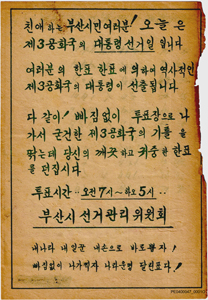 친애하는 부산시민 여러분! 오늘은
제3공화국의 대통령선거일 입니다
여러분의 한표 한표에 의하여 역사적인
제3공화국의 대통령이 선출됩니다.
다 같이! 빠짐없이 투표장으로 나
가서 굳건한 제3공화국의 기틀을
닦는데 당신의 깨끗하고 귀중한 한표
를 던집시다.
투표시간.. 오전7시~하오5시..
부산시 선거관리위원회
내나라 내일꾼 내손으로 바로뽑자!
빠짐없이 나가찍자 나라운명 달린표다!